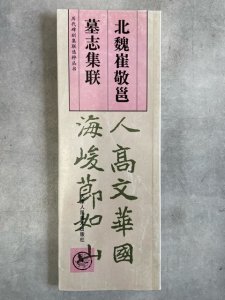 历代碑刻集联选粹丛书
北魏崔敬邕
墓志集联
人高文華國
海峻節如山